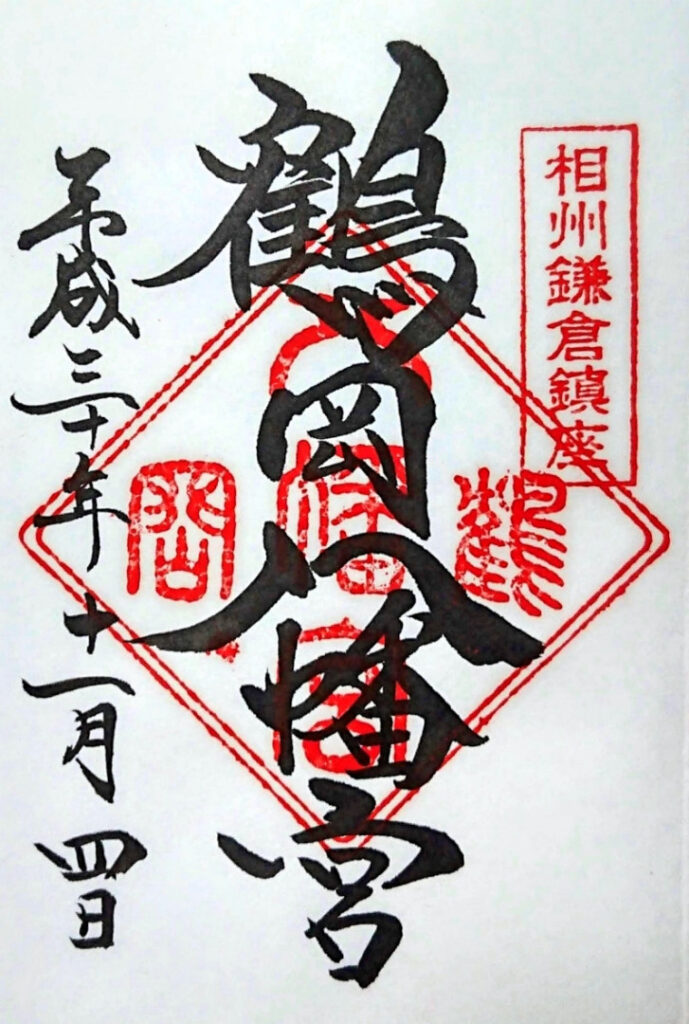 相州鎌倉鎮座
鶴岡八幡宮
鶴 岡
八
幡
宮
平成三十年十一月四日